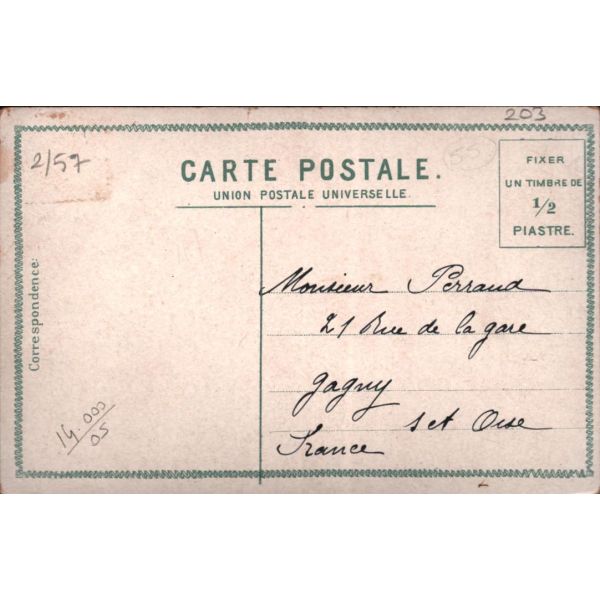 203
2/57
55
CARTE POSTALE.
UNION POSTALE UNIVERSELLE.
FIXER
UN TIMBRE DE
1/2
PIASTRE.
Correspondence:
Monsieur Perraud
21 Rue de la gare
Gagny
S et Oise
France
14.000
05